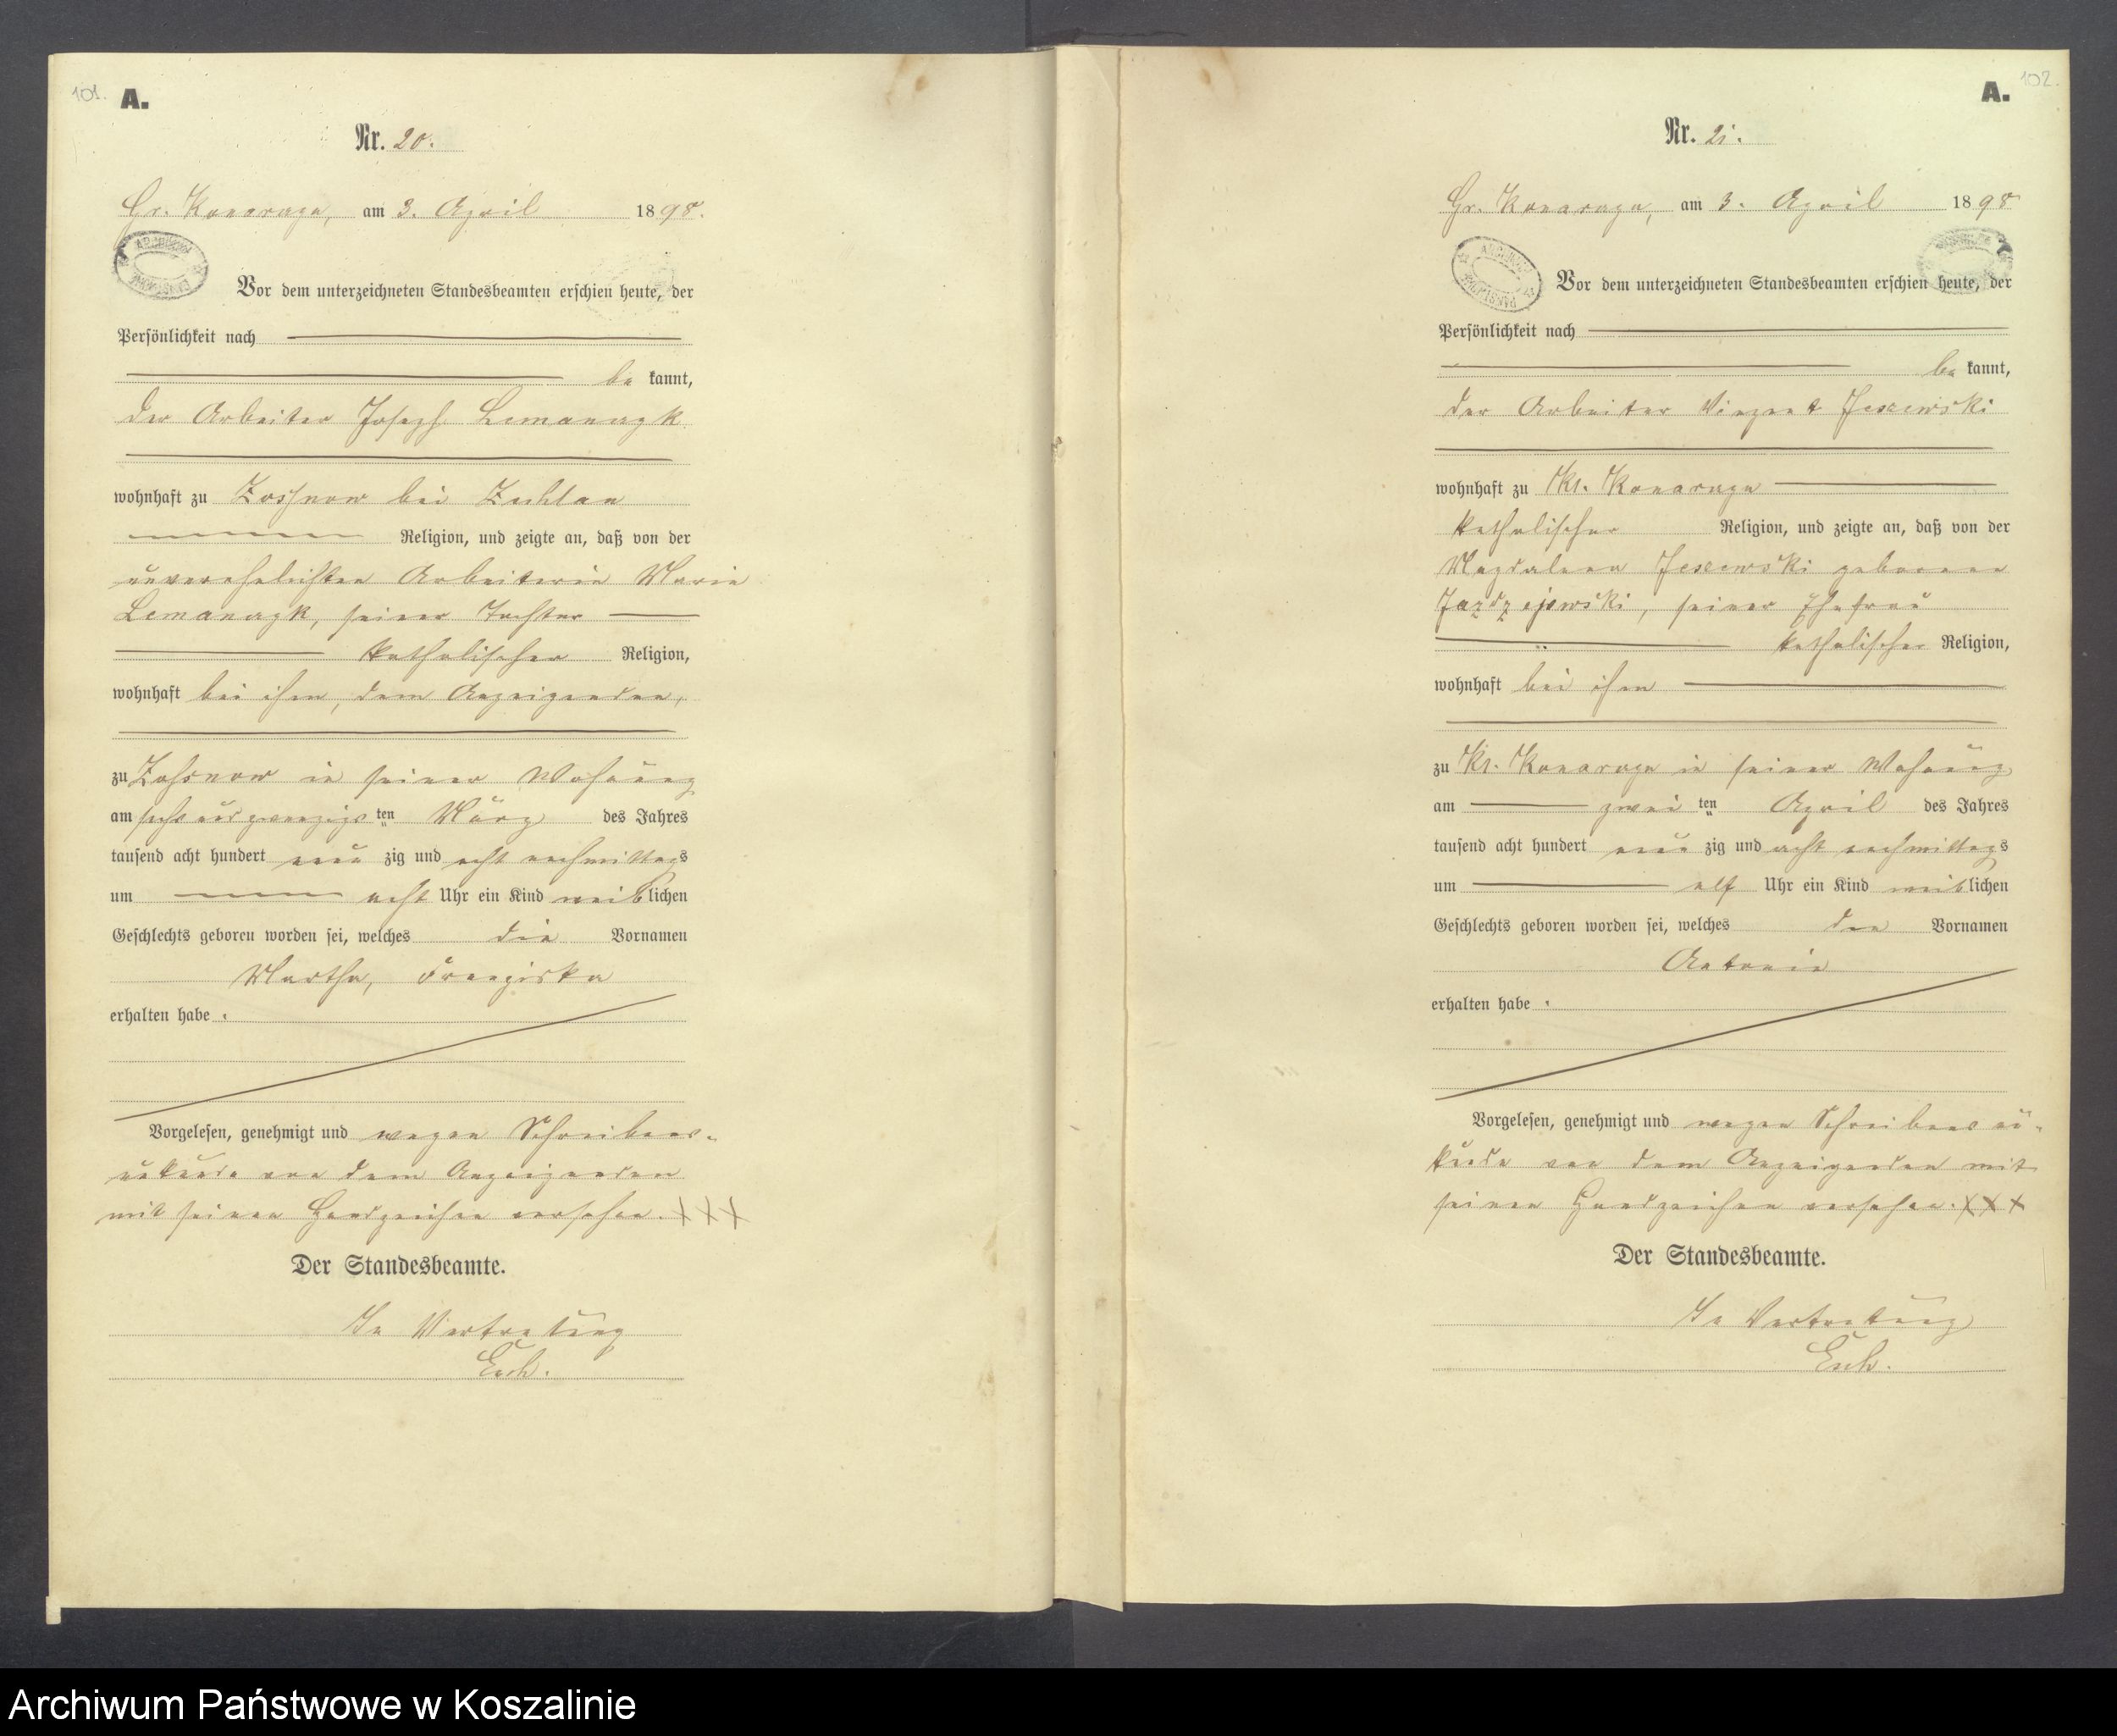 101.
A.
Nr. 20.
Gr. Konarzyn, am 3. April 1898.
Vor dem unterzeichneten Standesbeamten erschien heute, der
Persönlichkeit nach
be kannt,
der Arbeiter Joseph Lemanczyk
wohnhaft zu bei
Religion, und zeigte an, daß von der
unverehelichten Arbeiterin Marie
Lemanczyk, seiner Tochter
katholischer Religion,
wohnhaft bei ihm, dem Anzeigenden,
zu in seiner Wohnung
am sechs und zwanzigs ten März des Jahres
tausend acht hundert neun zig und acht nachmittags
um acht Uhr ein Kind weiblichen
Geschlechts geboren worden sei, welches die Vornamen
Martha, Franziska
erhalten habe.
Vorgelesen, genehmigt und wegen Schreibens-
unkunde von dem Anzeigenden
mit seinem Handzeichen versehen. XXX
Der Standesbeamte.
In Vertretung
102.
A.
Nr. 21.
Gr. Konarzyn, am 3. April 1898
Vor dem unterzeichneten Standesbeamten erschien heute, der
Persönlichkeit nach
be kannt,
der Arbeiter Vinzent Jeszewski
wohnhaft zu Kl. Konarzyn
katholischer Religion, und zeigte an, daß von der
Magdalena Jeszewski geborenen
seiner Ehefrau
katholischer Religion,
wohnhaft bei ihm
zu Kl. Konarzyn in seiner Wohnung
am zwei ten April des Jahres
tausend acht hundert neun zig und acht nachmittags
um elf Uhr ein Kind weiblichen
Geschlechts geboren worden sei, welches den Vornamen
Antonie
erhalten habe.
Vorgelesen, genehmigt und wegen Schreibens un-
kunde von dem Anzeigenden mit
seinem Handzeichen versehen. XXX
Der Standesbeamte.
In Vertretung
Archiwum Państwowe w Koszalinie